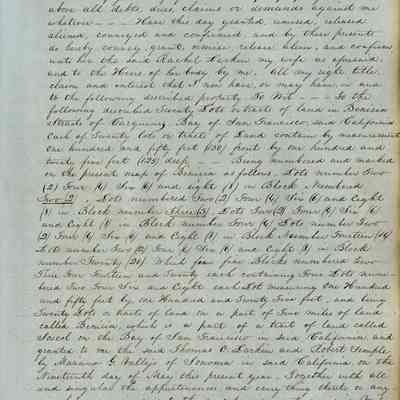 above all debts, dues, claims or demands against me
whatever - - - Have this day granted, remised, released
aliened, conveyed and confirmed, and by these presents
do hereby convey, grant, remise, release, alien, and confirm
unto her the said Rachel Larkin my wife as aforesaid
and to the Heirs of her body by me, All my right title
claim and interest that I now have, or may have, in and
to the following described property, To Wit - - - To the
following described Twenty Lots or tracts of land in Benicia
Straits of Carquinez, Bay of San Francisco, said California
Each of Twenty lots or tracts of Land contain by measurement
one hundred and fifty feet (150) front by one hundred and
twenty five feet (125) deep - - Being numbered and marked
on the present map of Benicia as follows. Lots number Two
(2) Four (4) Six (6) and eight (8) in Block Numbered
Two (2), Lots numbered Two (2) Four (4) Six (6) and Eight
(8) in Block number Three (3), Lots Two (2) Four (4) Six (6)
and Eight (8) in Block number Four (4) Lots number Two
(2) Four (4) Six (6) and Eight (8) in Block Number Fourteen (14)
Lots number Two (2) Four (4) Six (6) and Eight (8) in Block
number Twenty (20) Which five Blocks numbered Two
Three Four Fourteen and Twenty each containing Four Lots num-
bered Two Four Six and Eight each Lot measuring One Hundred
and fifty feet by One Hundred and Twenty Five feet, and being
Twenty Lots or tracts of land on a part of Five miles of land
called Benicia, which is a part of a tract of land called
Soscol on the Bay of San Francisco in said California and
granted to me the said Thomas O. Larkin and Robert Semple
by Mariano G. Vallejo of Sonoma in said California on the
Nineteenth day of May this present year. Together with all
and singular the appurtenances and every thing thereto in any